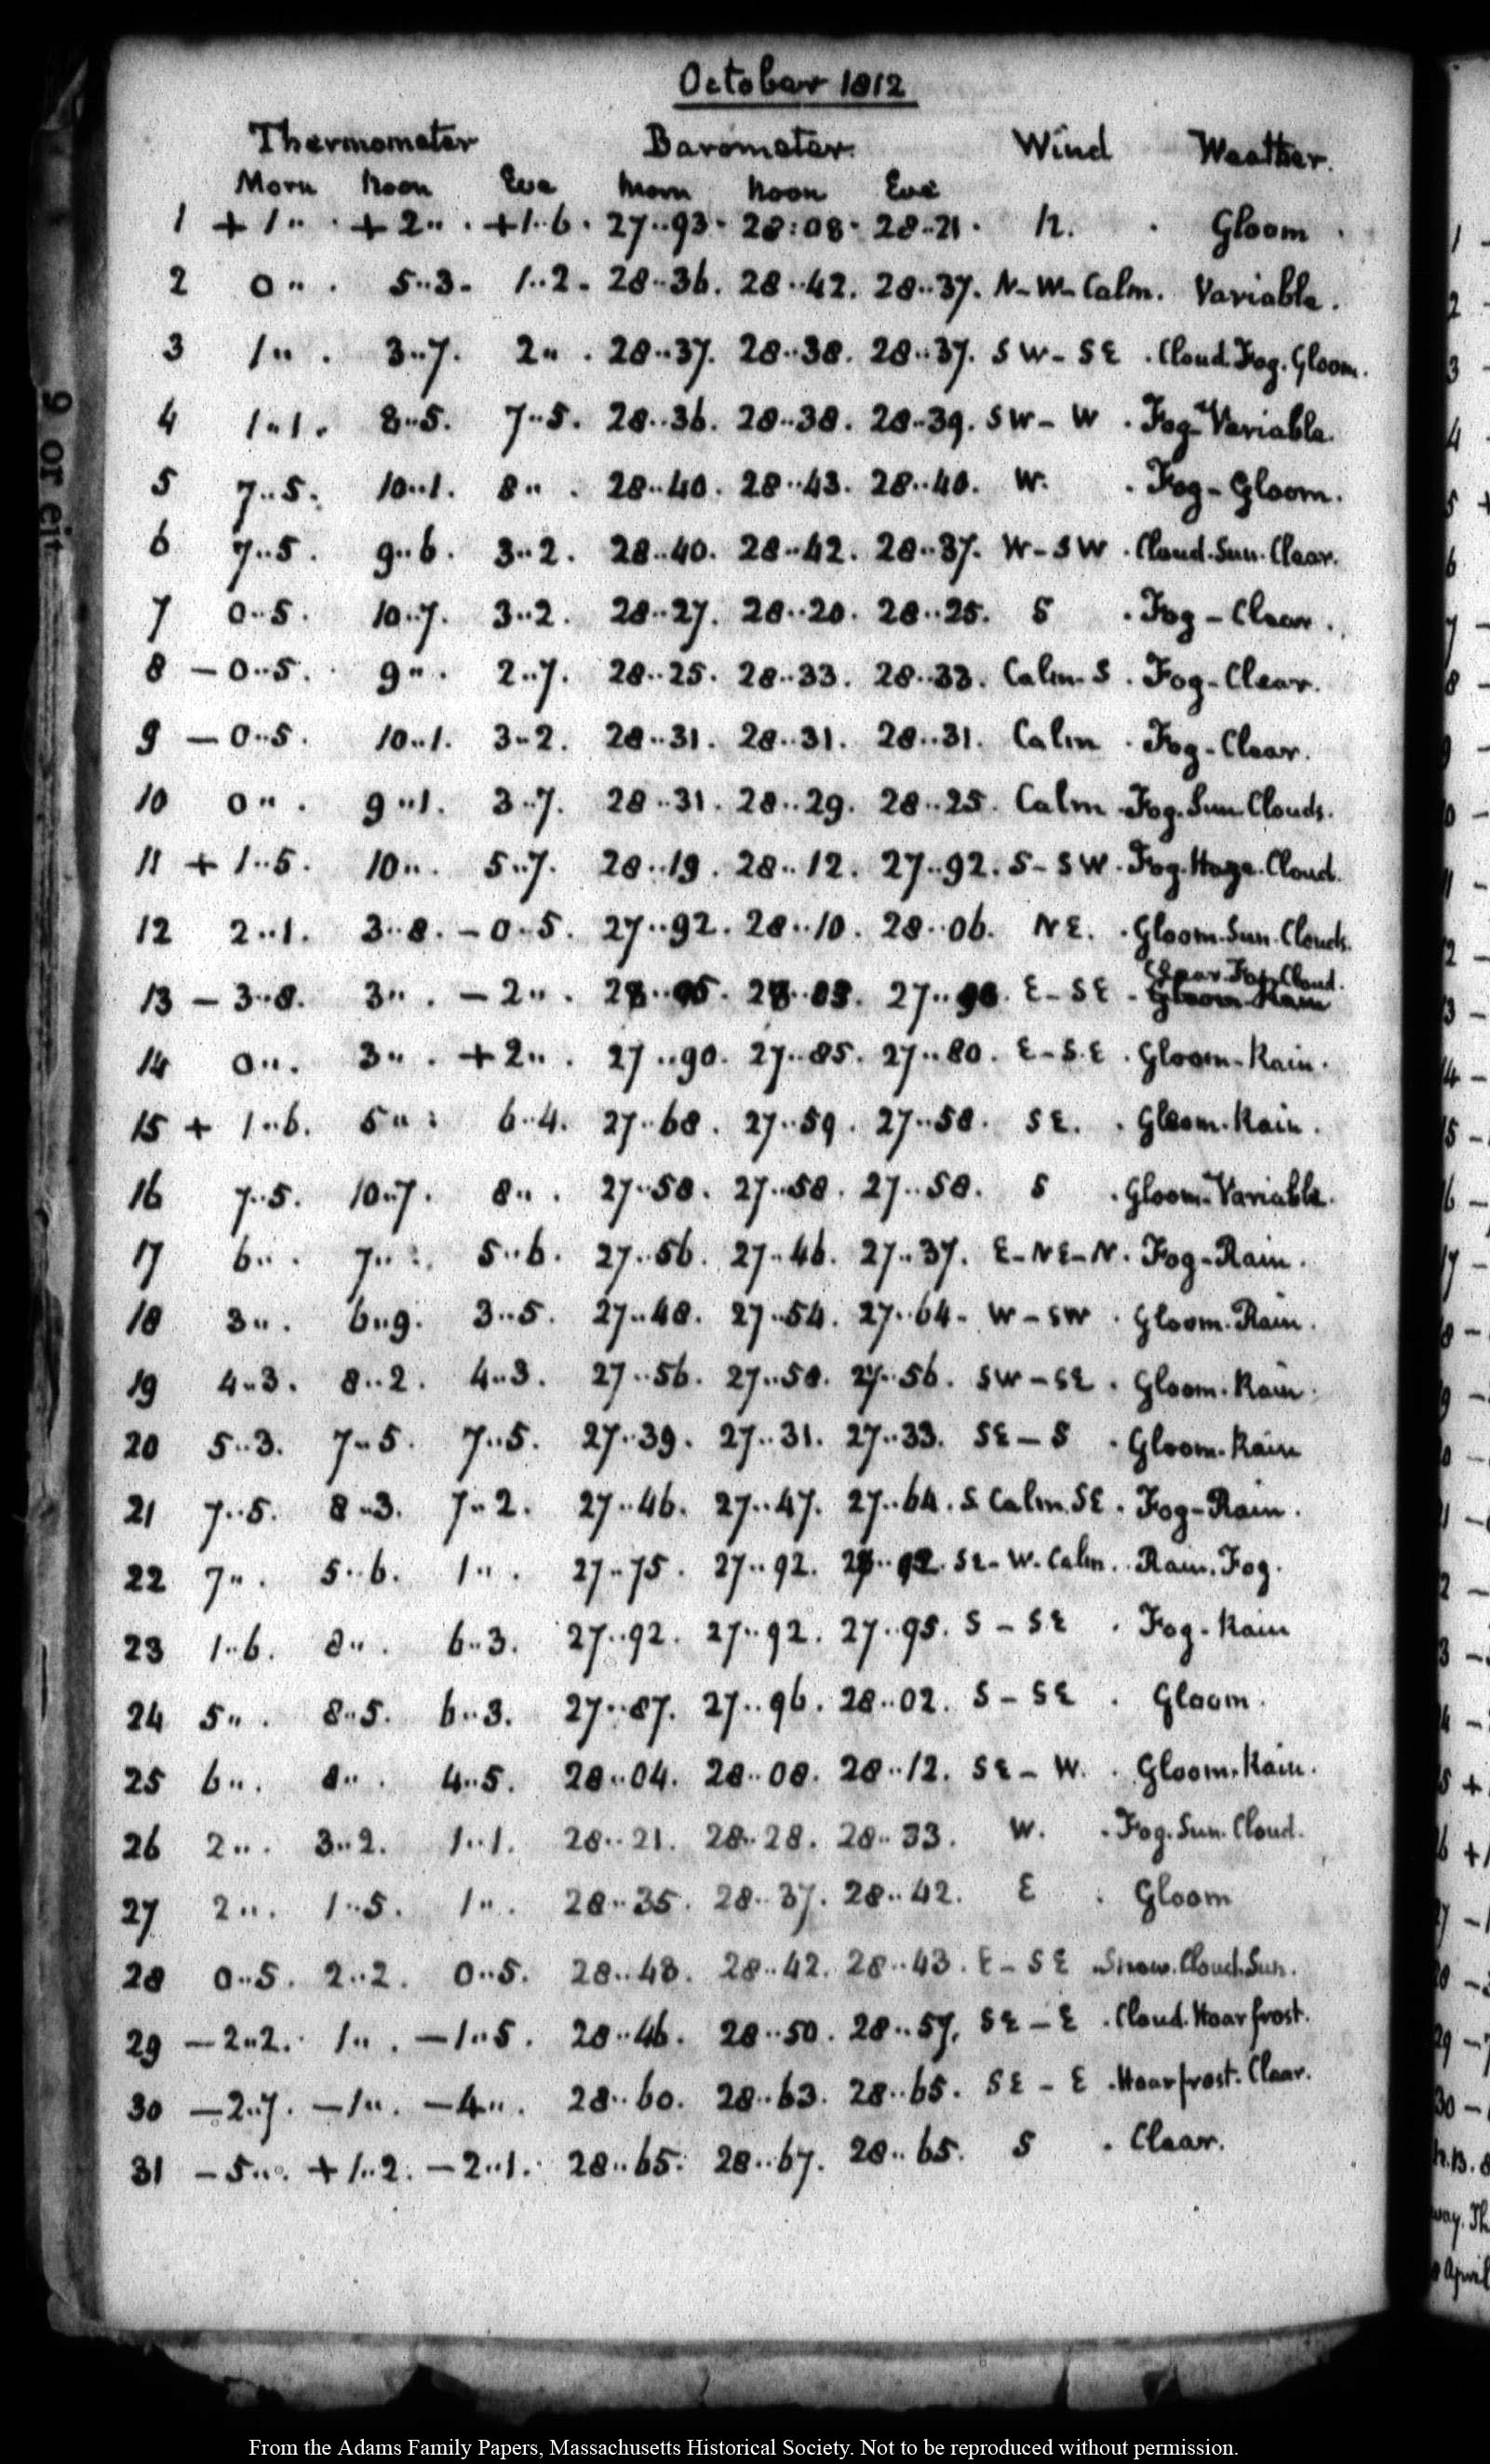 October 1812
Thermometer Barometer. Wind Weather.
Morn Noon Eve Morn Noon Eve
1 + 1 " . + 2 " . + 1..6 . 27..93 . 28:08 . 28..21 . N. . Gloom .
2 0 " . 5..3 . 1..2 . 28..36 . 28..42 . 28..37 . N-W-Calm . Variable .
3 1 " . 3..7 . 2 " . 28..37 . 28..38 . 28..37 . SW-SE . Cloud.Fog.Gloom .
4 1..1 . 8..5 . 7..5 . 28..36 . 28..38 . 28..39 . SW-W . Fog-Variable .
5 7..5 . 10..1 . 8 " . 28..40 . 28..43 . 28..40 . W. . Fog-Gloom .
6 7..5 . 9..6 . 3..2 . 28..40 . 28..42 . 28..37 . W-SW . Cloud.Sun.Clear .
7 0..5 . 10..7 . 3..2 . 28..27 . 28..20 . 28..25 . S . Fog-Clear .
8 - 0..5 . 9 " . 2..7 . 28..25 . 28..33 . 28..33 . Calm-S . Fog-Clear .
9 - 0..5 . 10..1 . 3..2 . 28..31 . 28..31 . 28..31 . Calm . Fog-Clear .
10 0 " . 9..1 . 3..7 . 28..31 . 28..29 . 28..25 . Calm . Fog.Sun.Clouds .
11 + 1..5 . 10 " . 5..7 . 28..19 . 28..12 . 27..92 . S-SW . Fog.Haze.Cloud .
12 2..1 . 3..8 . - 0..5 . 27..92 . 28..10 . 28..06 . NE. . Gloom.Sun.Clouds .
Clear.Fog.Cloud .
13 - 3..8 . 3 " . - 2 " . 27.. E-SE . Gloom-Rain
14 0 " . 3 " . + 2 " . 27..90 . 27..85 . 27..80 . E-S.E . Gloom-Rain .
15 + 1..6 . 5 " . 6..4 . 27..68 . 27..59 . 27..58 . SE. . Gloom.Rain .
16 7..5 . 10..7 . 8 " . 27..58 . 27..58 . 27..58 . S . Gloom-Variable .
17 6 " . 7 " . 5..6 . 27..56 . 27..46 . 27..37 . E-NE-N . Fog-Rain .
18 3 " . 6..9 . 3..5 . 27..48 . 27..54 . 27..64 . W-SW . Gloom.Rain .
19 4..3 . 8..2 . 4..3 . 27..56 . 27..58 . 27..56 . SW-SE . Gloom.Rain .
20 5..3 . 7..5 . 7..5 . 27..39 . 27..31 . 27..33 . SE-S . Gloom.Rain
21 7..5 . 8..3 . 7..2 . 27..46 . 27..47 . 27..64 . S.Calm.SE . Fog-Rain .
22 7 " . 5..6 . 1 " . 27..75 . 27..92 . 27..92 . SE-W.Calm . Rain.Fog .
23 1..6 . 8 " . 6..3 . 27..92 . 27..92 . 27..95 . S-SE . Fog-Rain
24 5 " . 8..5 . 6..3 . 27..87 . 27..96 . 28..02 . S-SE . Gloom .
25 6 " . 8 " . 4..5 . 28..04 . 28..08 . 28..12 . SE-W . Gloom.Rain .
26 2 " . 3..2 . 1..1 . 28..21 . 28..28 . 28..33 . W. . Fog.Sun.Cloud .
27 2 " . 1..5 . 1 " . 28..35 . 28..37 . 28..42 . E . Gloom
28 0..5 . 2..2 . 0..5 . 28..43 . 28..42 . 28..43 . E-SE . Snow.Cloud.Sun .
29 - 2..2 . 1 " . - 1..5 . 28..46 . 28..50 . 28..57 . SE-E . Cloud.Hoarfrost .
30 - 2..7 . - 1 " . - 4 " . 28..60 . 28..63 . 28..65 . SE-E . Hoarfrost.Clear .
31 - 5 " . + 1..2 . - 2..1 . 28..65 . 28..67 . 28..65 . S . Clear .
From the Adams Family Papers, Massachusetts Historical Society. Not to be reproduced without permission.